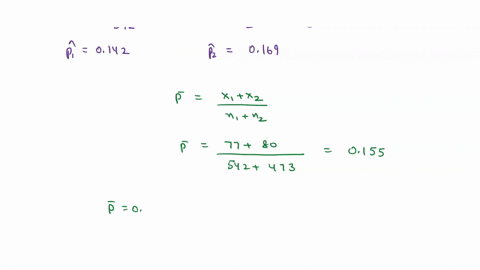 p̂₁ = 0.142 p̂₂ = 0.169
p̄ = x₁ + x₂ / n₁ + n₂
p̄ = 77 + 80 / 542 + 473 = 0.155
p̄ = 0.